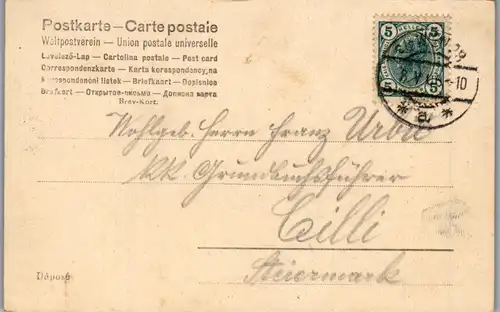 Postkarte — Carte postale
Weltpostverein — Union postale universelle
Levelező-Lap — Cartolina postale — Post card
Correspondenzkarte — Karta korespondencyjna
Korespondenční lístek — Briefkaart — Dopisnice
Brefkort — Открытое-письмо — Дописна карта
Brev-Kort.
5 HELLER 5
5 5
Wohlgeb. Herrn Franz
KK. Grundbuchsführer
Cilli
Steiermark
Déposé